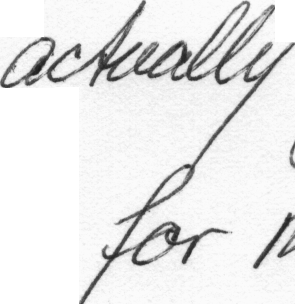 actually
for